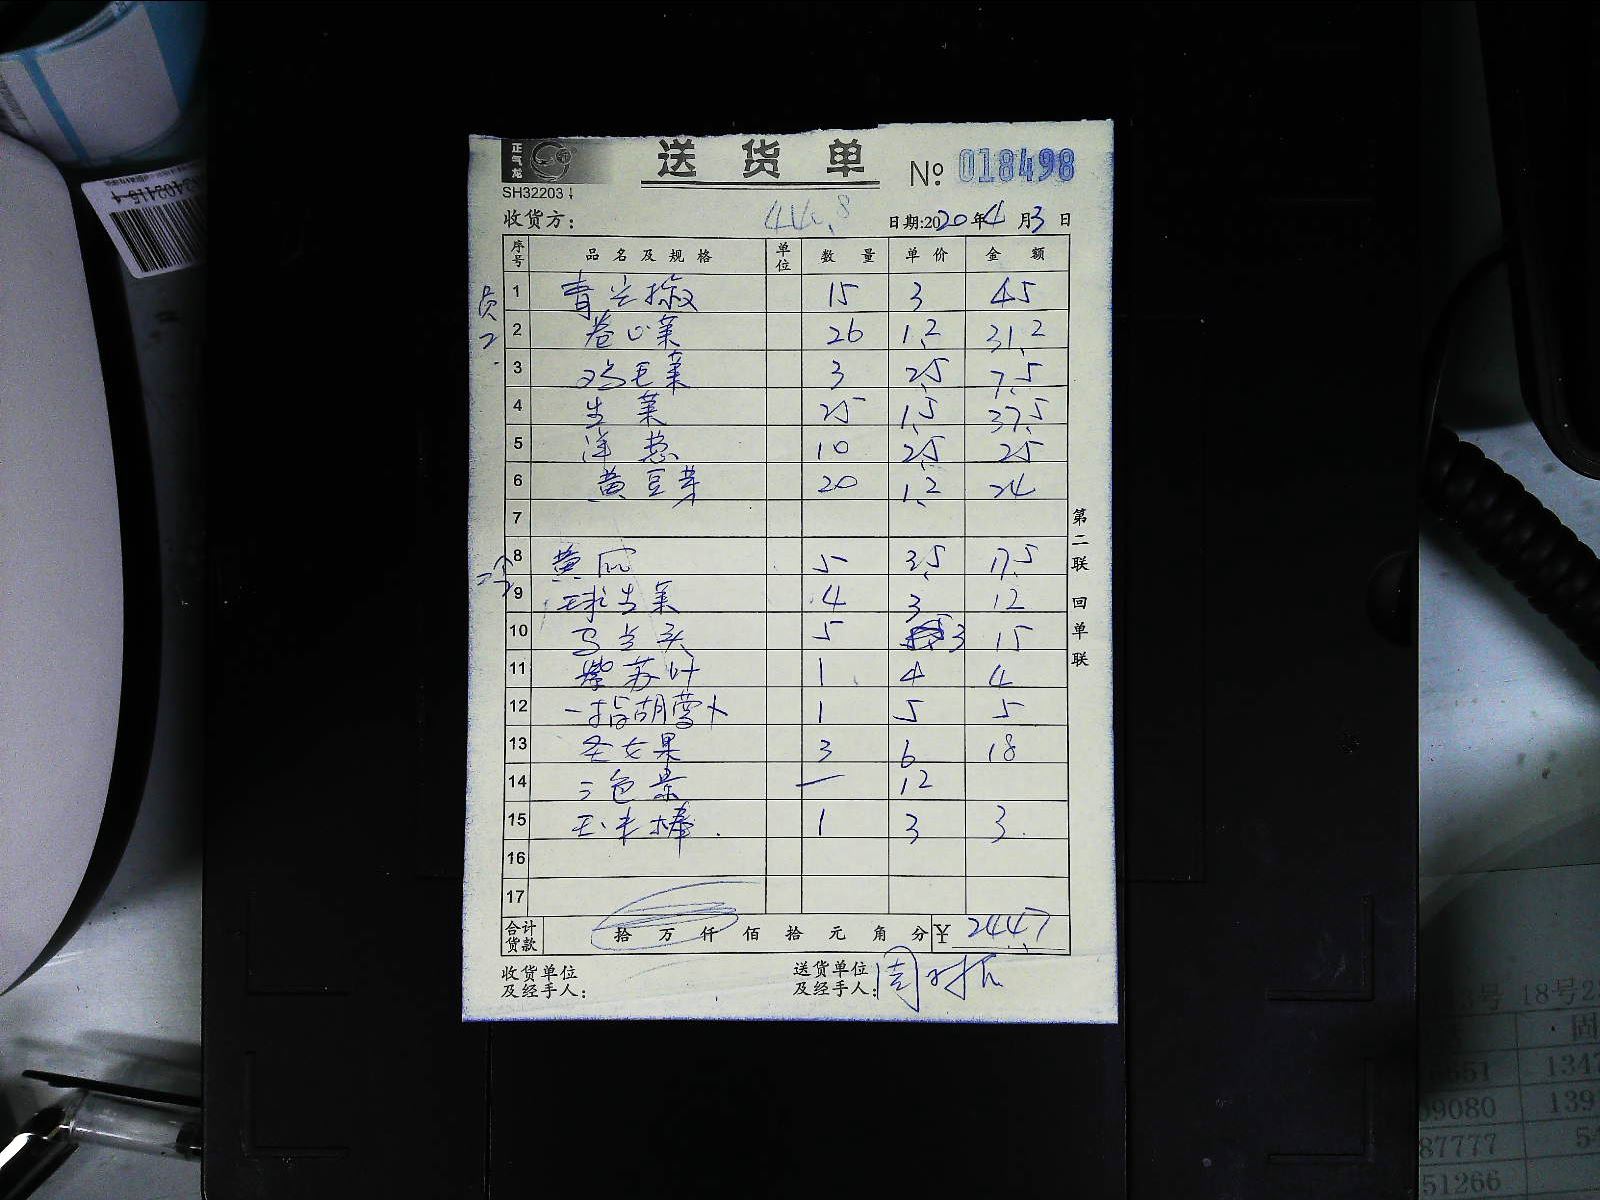 正气龙
送货单
№ 018498
SH32203
收货方：
44.8
日期:2020年4月3日
序号 品名及规格 单位 数量 单价 金额
员工
1 青尖椒 15 3 45
2 卷心菜 26 1.2 31.2
3 鸡毛菜 3 2.5 7.5
4 生菜 25 1.5 37.5
5 洋葱 10 2.5 25
6 黄豆芽 20 1.2 24
7
8 黄瓜 5 3.5 17.5
9 球生菜 4 3 12
10 马兰头 5 3 15
11 紫苏叶 1 4 4
12 手指胡萝卜 1 5 5
13 圣女果 3 6 18
14 三色堇 一 12
15 玉米棒 1 3 3
16
17
合计货款 拾万仟佰拾元角分 ¥ 244.7
收货单位及经手人：
送货单位及经手人：
第二联 回单联
3号 18号2
固
6651 1347
09080 139
87777 54
51266